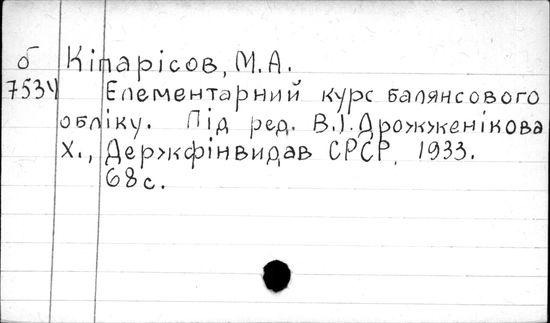 б Кіпарісов, М.А.
7534 Елементарний курс балянсового
обліку. Під ред. В.І. Дрожженікова
Х., Держфінвидав СРСР, 1933.
68 с.